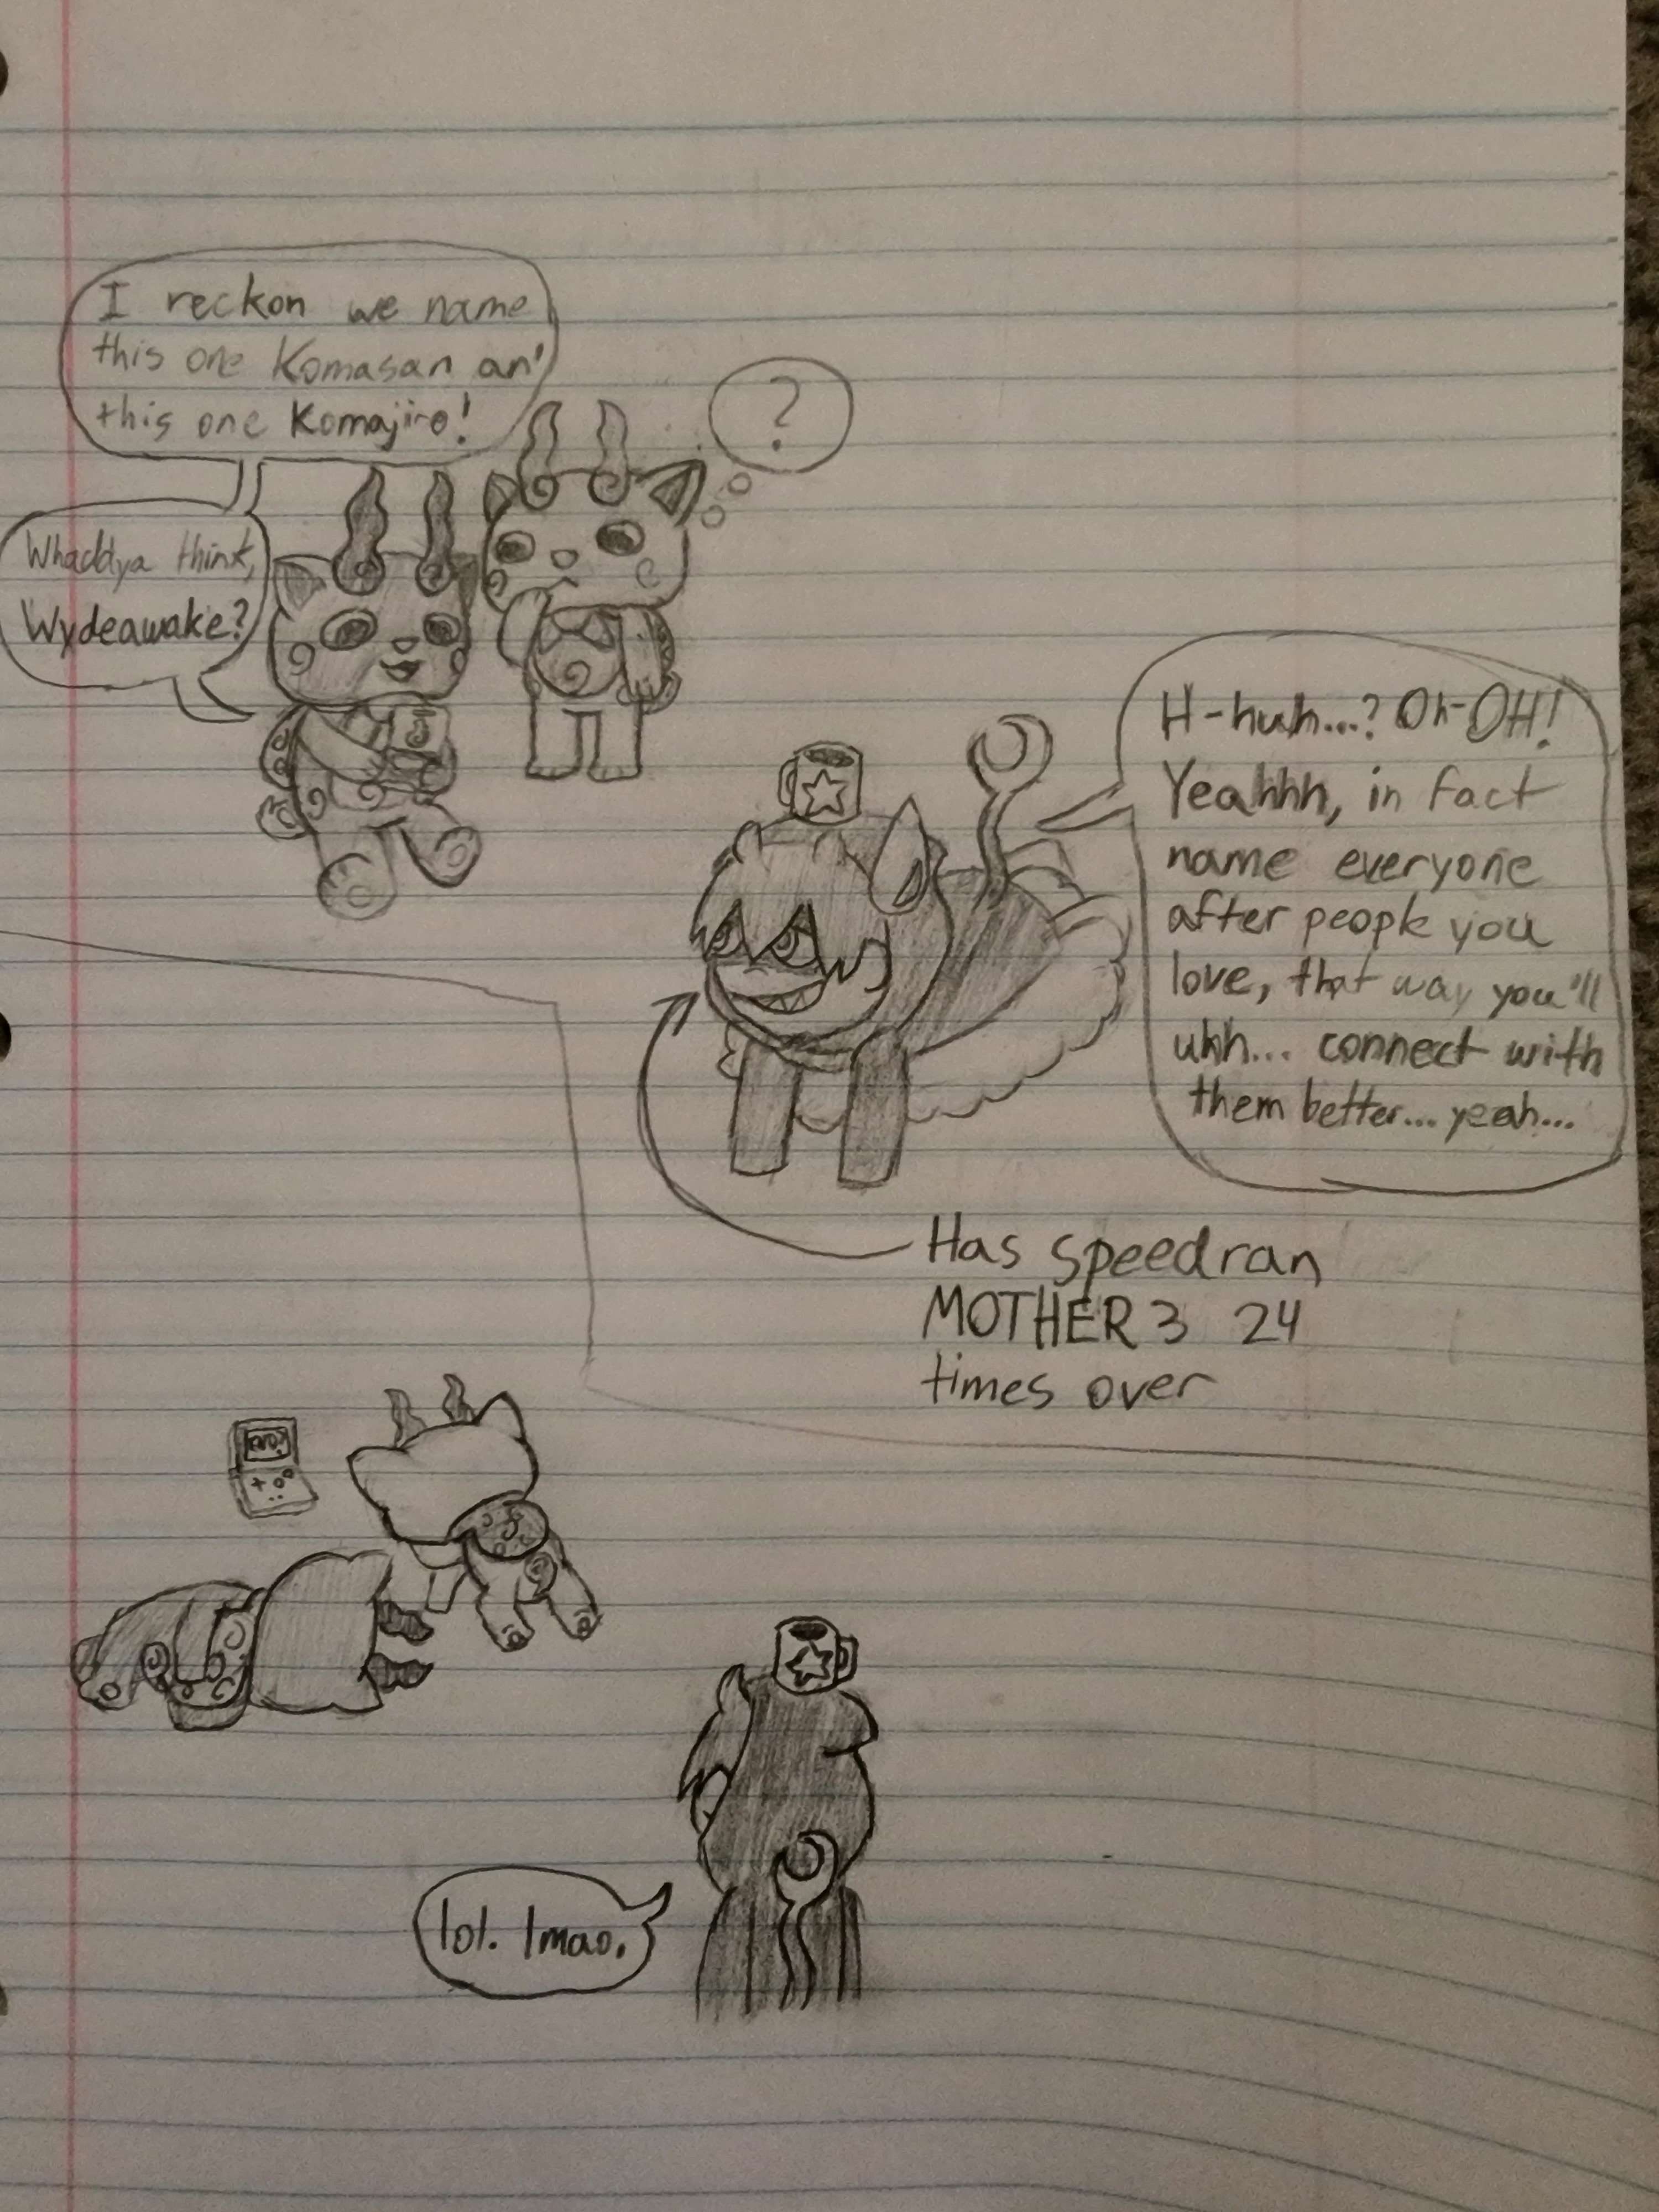 I reckon we name
this one Komasan an'
this one Komajiro!
?
Whaddya think,
Wydeawake?
H-huh...? Oh-OH!
Yeahhh, in fact
name everyone
after people you
love, that way you'll
uhh... connect with
them better... yeah...
Has speedran
MOTHER 3 24
times over
lol. lmao.